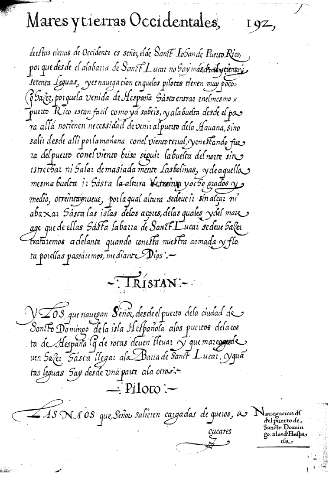 Mares y tierras Occidentales, 192
destas tierras de Occidente es señor, el de Sanct Johan de Puerto Rico
porque desde el a la barra de Sanct Lucar no hay mas de mil y
setenta leguas, y es navegacion en que los pilotos tienen muy poco
que hazer, porque la venida de Hespaña hasta entrar en el mesmo
puerto Rico es tan facil como ya sabeis, y a la buelta desde el pa
ra alla no tienen necesidad de venir al puerto de la Havana, sino
salir desde alli por la mañana con el viento terral, y en estando fue
ra del puerto con el viento brisa seguir la buelta del norte sin
estrechar ni halar demasiado mente las bolinas, y de aquella
mesma buelta ir hasta la altura de treinta y ocho grados y
medio, o treinta y nueve, por la qual altura se deve ir sin alçar ni
abaxar hasta las islas de los açores, de las quales y del mar
age que de ellas hasta la barra de Sanct Lucar se deve hazer
trataremos adelante quando con esta nuestra armada y flo
ta por ellas passaremos, mediante Dios.
TRISTAN
LOS que navegan Señor, desde el puerto de la ciudad de
Sancto Domingo de la isla Hespañola a los puertos de la cos
ta de Hespaña que derrotas deven llevar y que marages de
ven hazer hasta llegar a la Barra de Sanct Lucar, y quan
tas leguas hay desde una parte a la otra.
Piloto
LAS NAOS que Señor salieren cargadas de cueros, a
çucares
Navegacion de
del puerto de
Sancto Domin
go, a la de Hespa
ña.